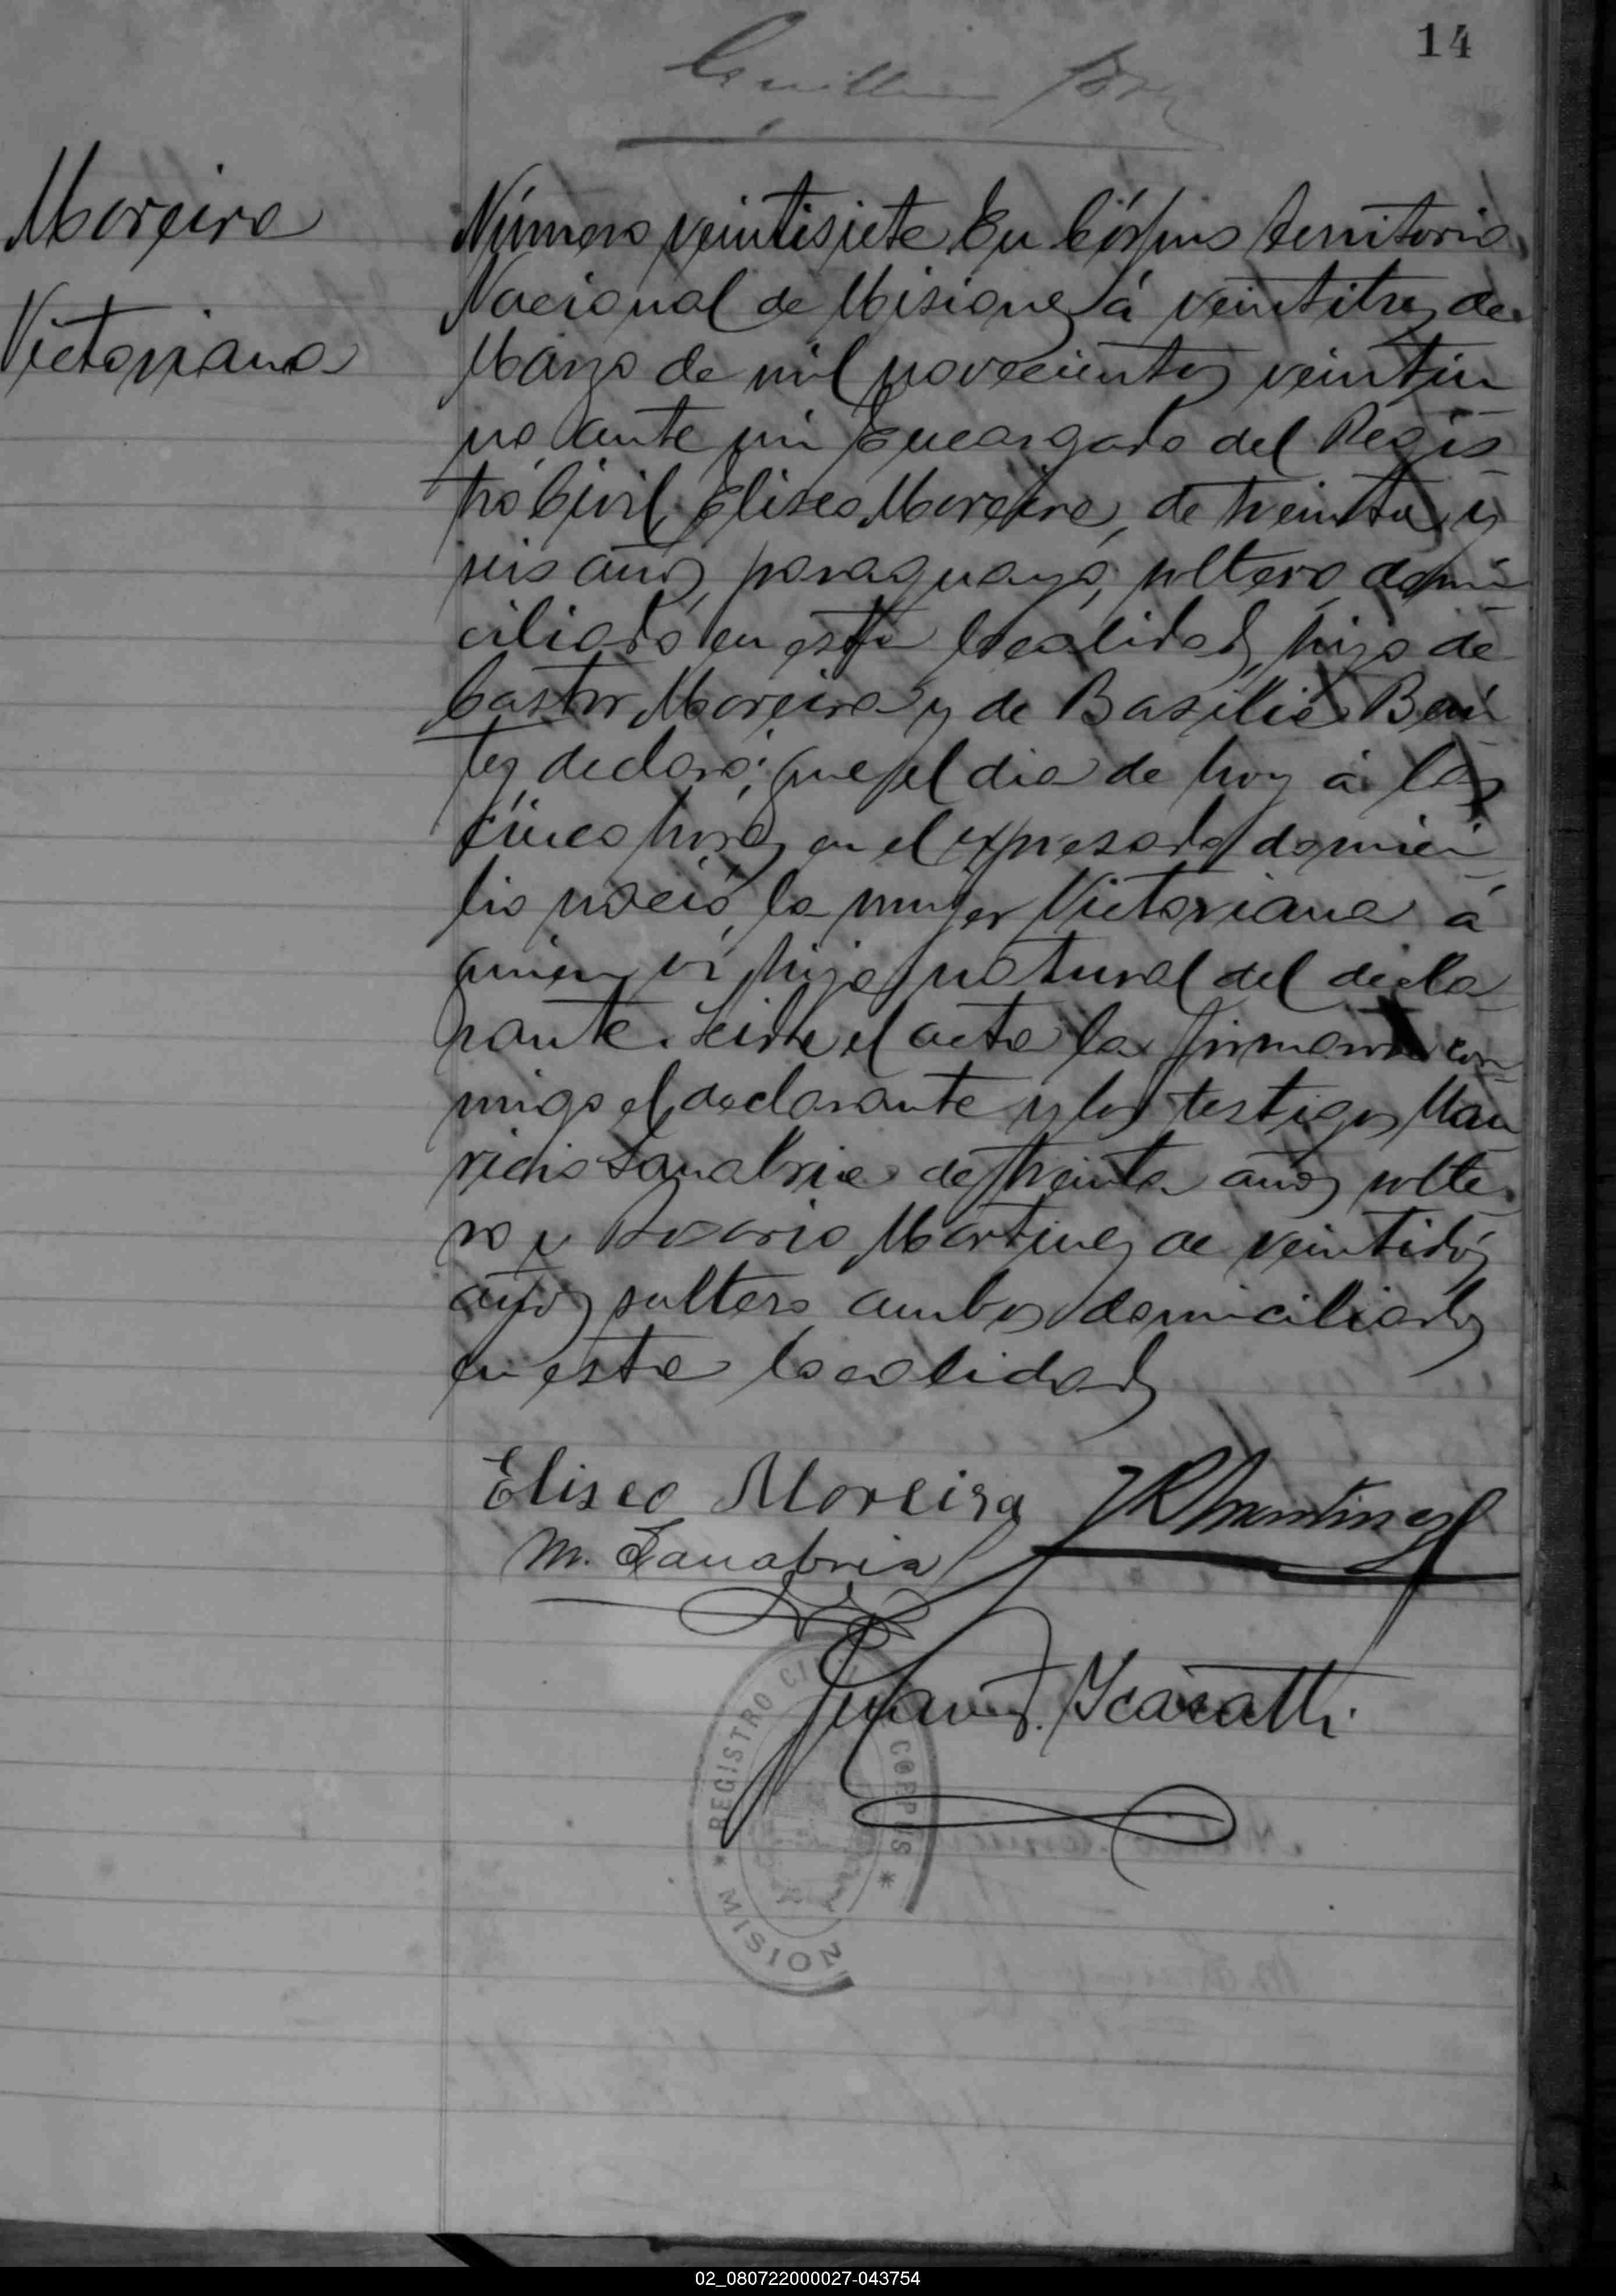 14
Moreira
Victoriana
Número veintisiete En Córpus territorio
Nacional de Misiones á veintitres de
Marzo de mil novecientos veintiu
no, ante mi Encargado del Regis
tro Civil, Eliseo Moreira, de treinta y
seis años, paraguayo, soltero, domi
ciliado en esta localidad, hijo de
Castor Moreira y de Basilia Beni
tes, declaró: que el dia de hoy á las
cinco horas en el expresado domici
lio nació la mujer Victoriana á
quien ví, hija natural del decla
rante. Leida el acta la firmaron con
migo el declarante y los testigos Mau
ricio Sanabria de treinta años solte
ro y Rosario Martinez de veintidós
años soltero ambos domiciliados
en esta localidad
Eliseo Moreira JRMartinez
M. Sanabria
Scaratti
REGISTRO CIVIL CORPUS
MISION
02_080722000027-043754